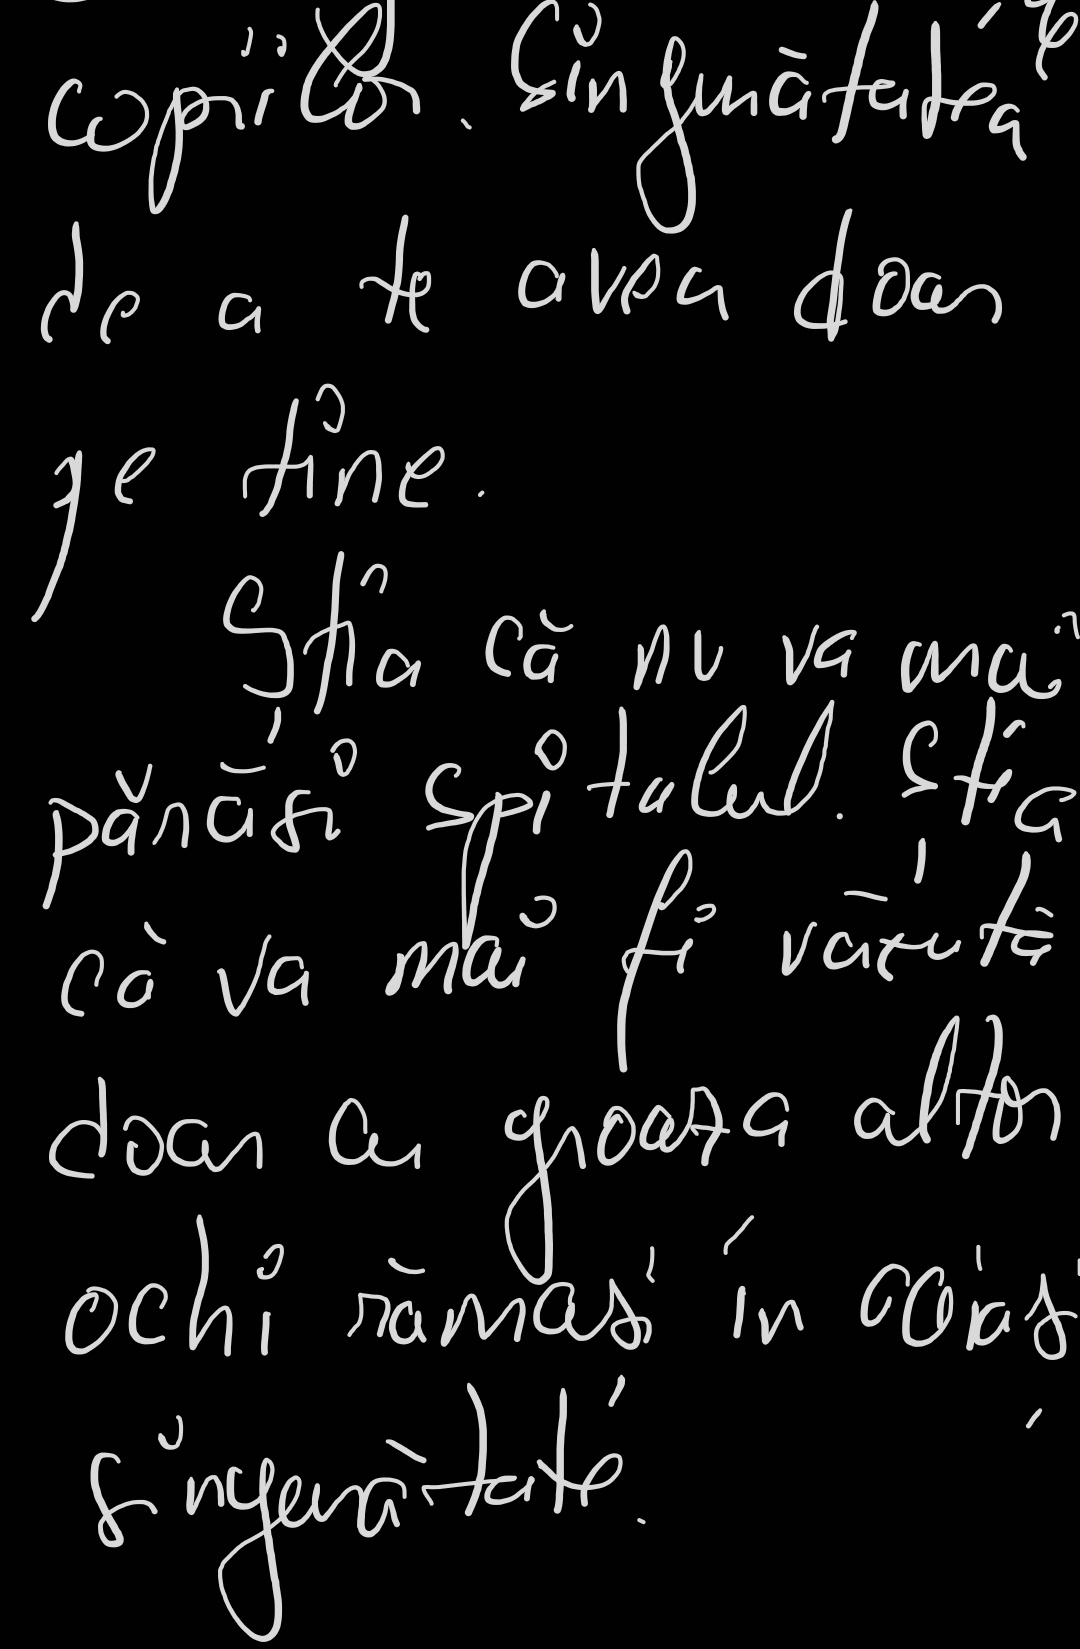 copiilor. Singurătatea
de a te avea doar
pe tine.
Știa că nu va mai
părăsi spitalul. Știa
că va mai fi văzută
doar cu groaza altor
ochi rămași în aceiași
singurătate.